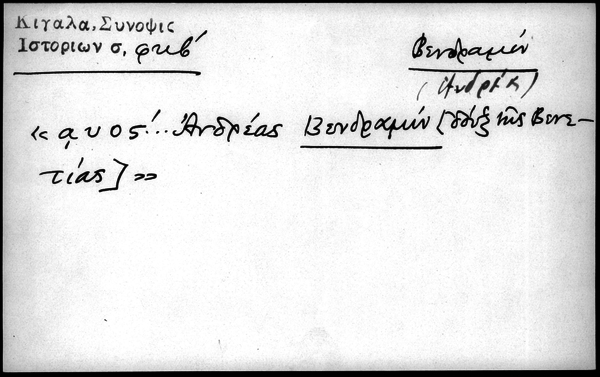 Κιγαλα, Συνοψις
Ιστοριων σ, φκβ΄
Βενδραμίν
(Ἀνδρέας)
« ͵αυος΄... Ἀνδρέας Βενδραμίν [δόυξ τῆς Βενε-
τίας] »